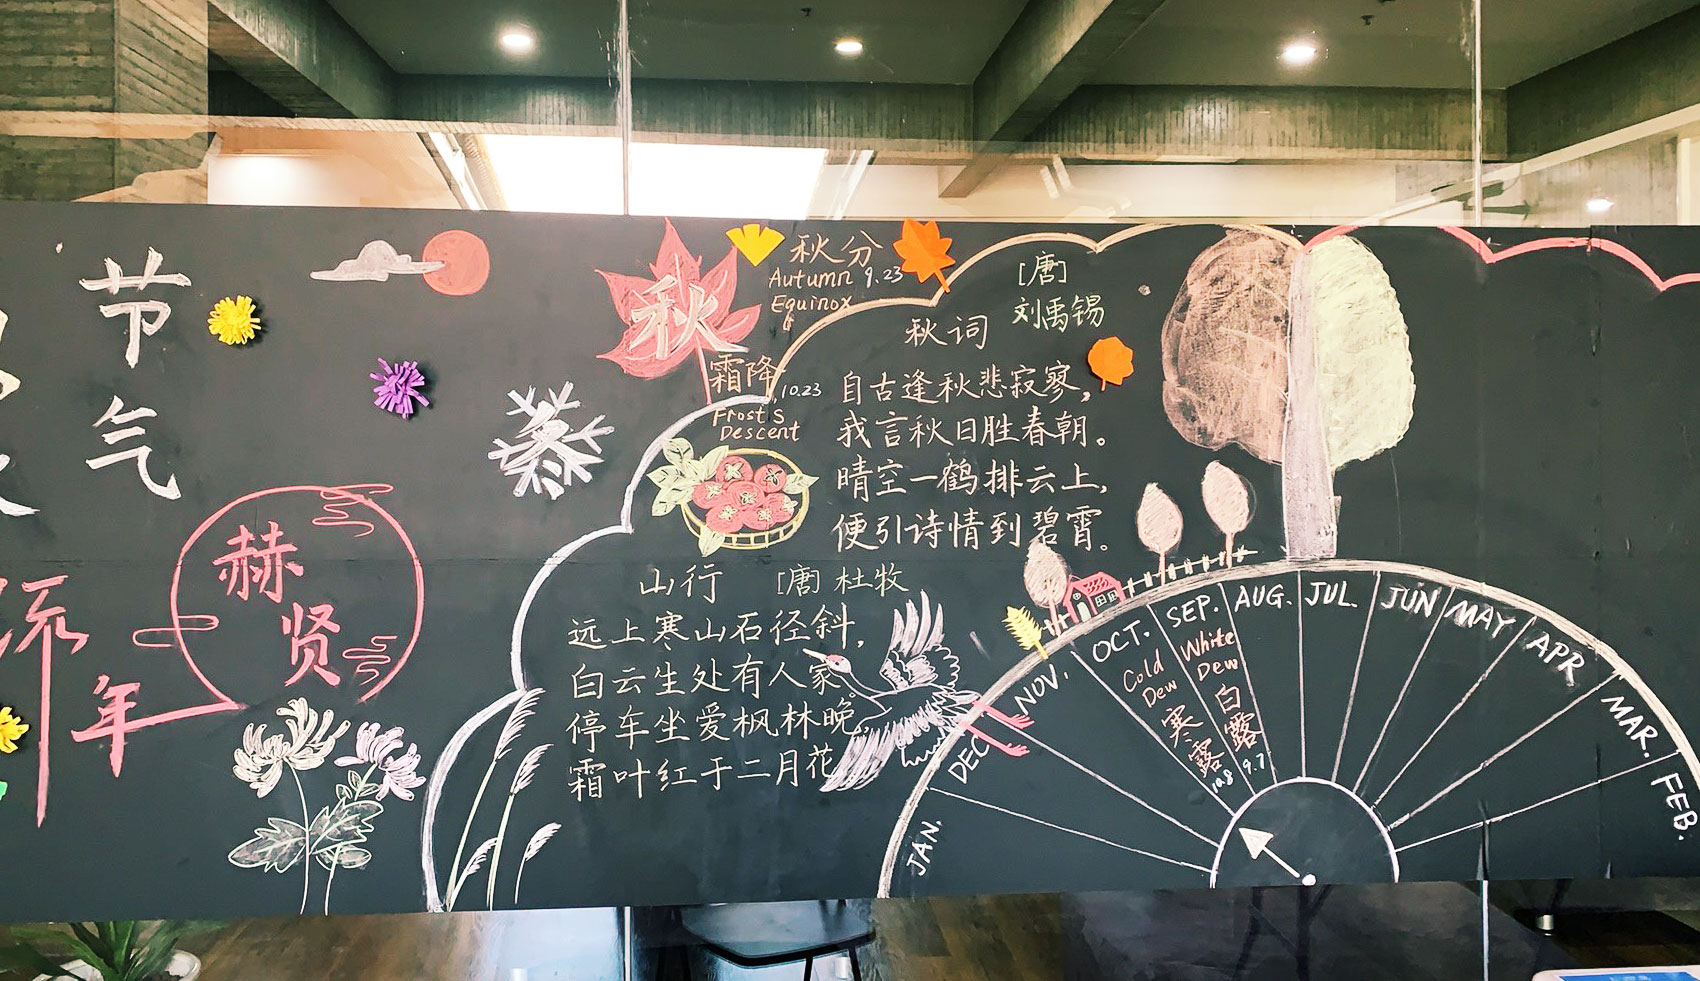 节
气
流
年
赫
贤
秋
秋分
Autumn 9.23
Equinox
霜降
10.23
Frost's
Descent
[唐]
刘禹锡
秋词
自古逢秋悲寂寥，
我言秋日胜春朝。
晴空一鹤排云上，
便引诗情到碧霄。
山行 [唐] 杜牧
远上寒山石径斜，
白云生处有人家。
停车坐爱枫林晚，
霜叶红于二月花
JAN.
DEC
NOV.
OCT.
Cold
Dew
寒
露
10.8
SEP.
White
Dew
白
露
9.7
AUG.
JUL.
JUN
MAY
APR
MAR.
FEB.